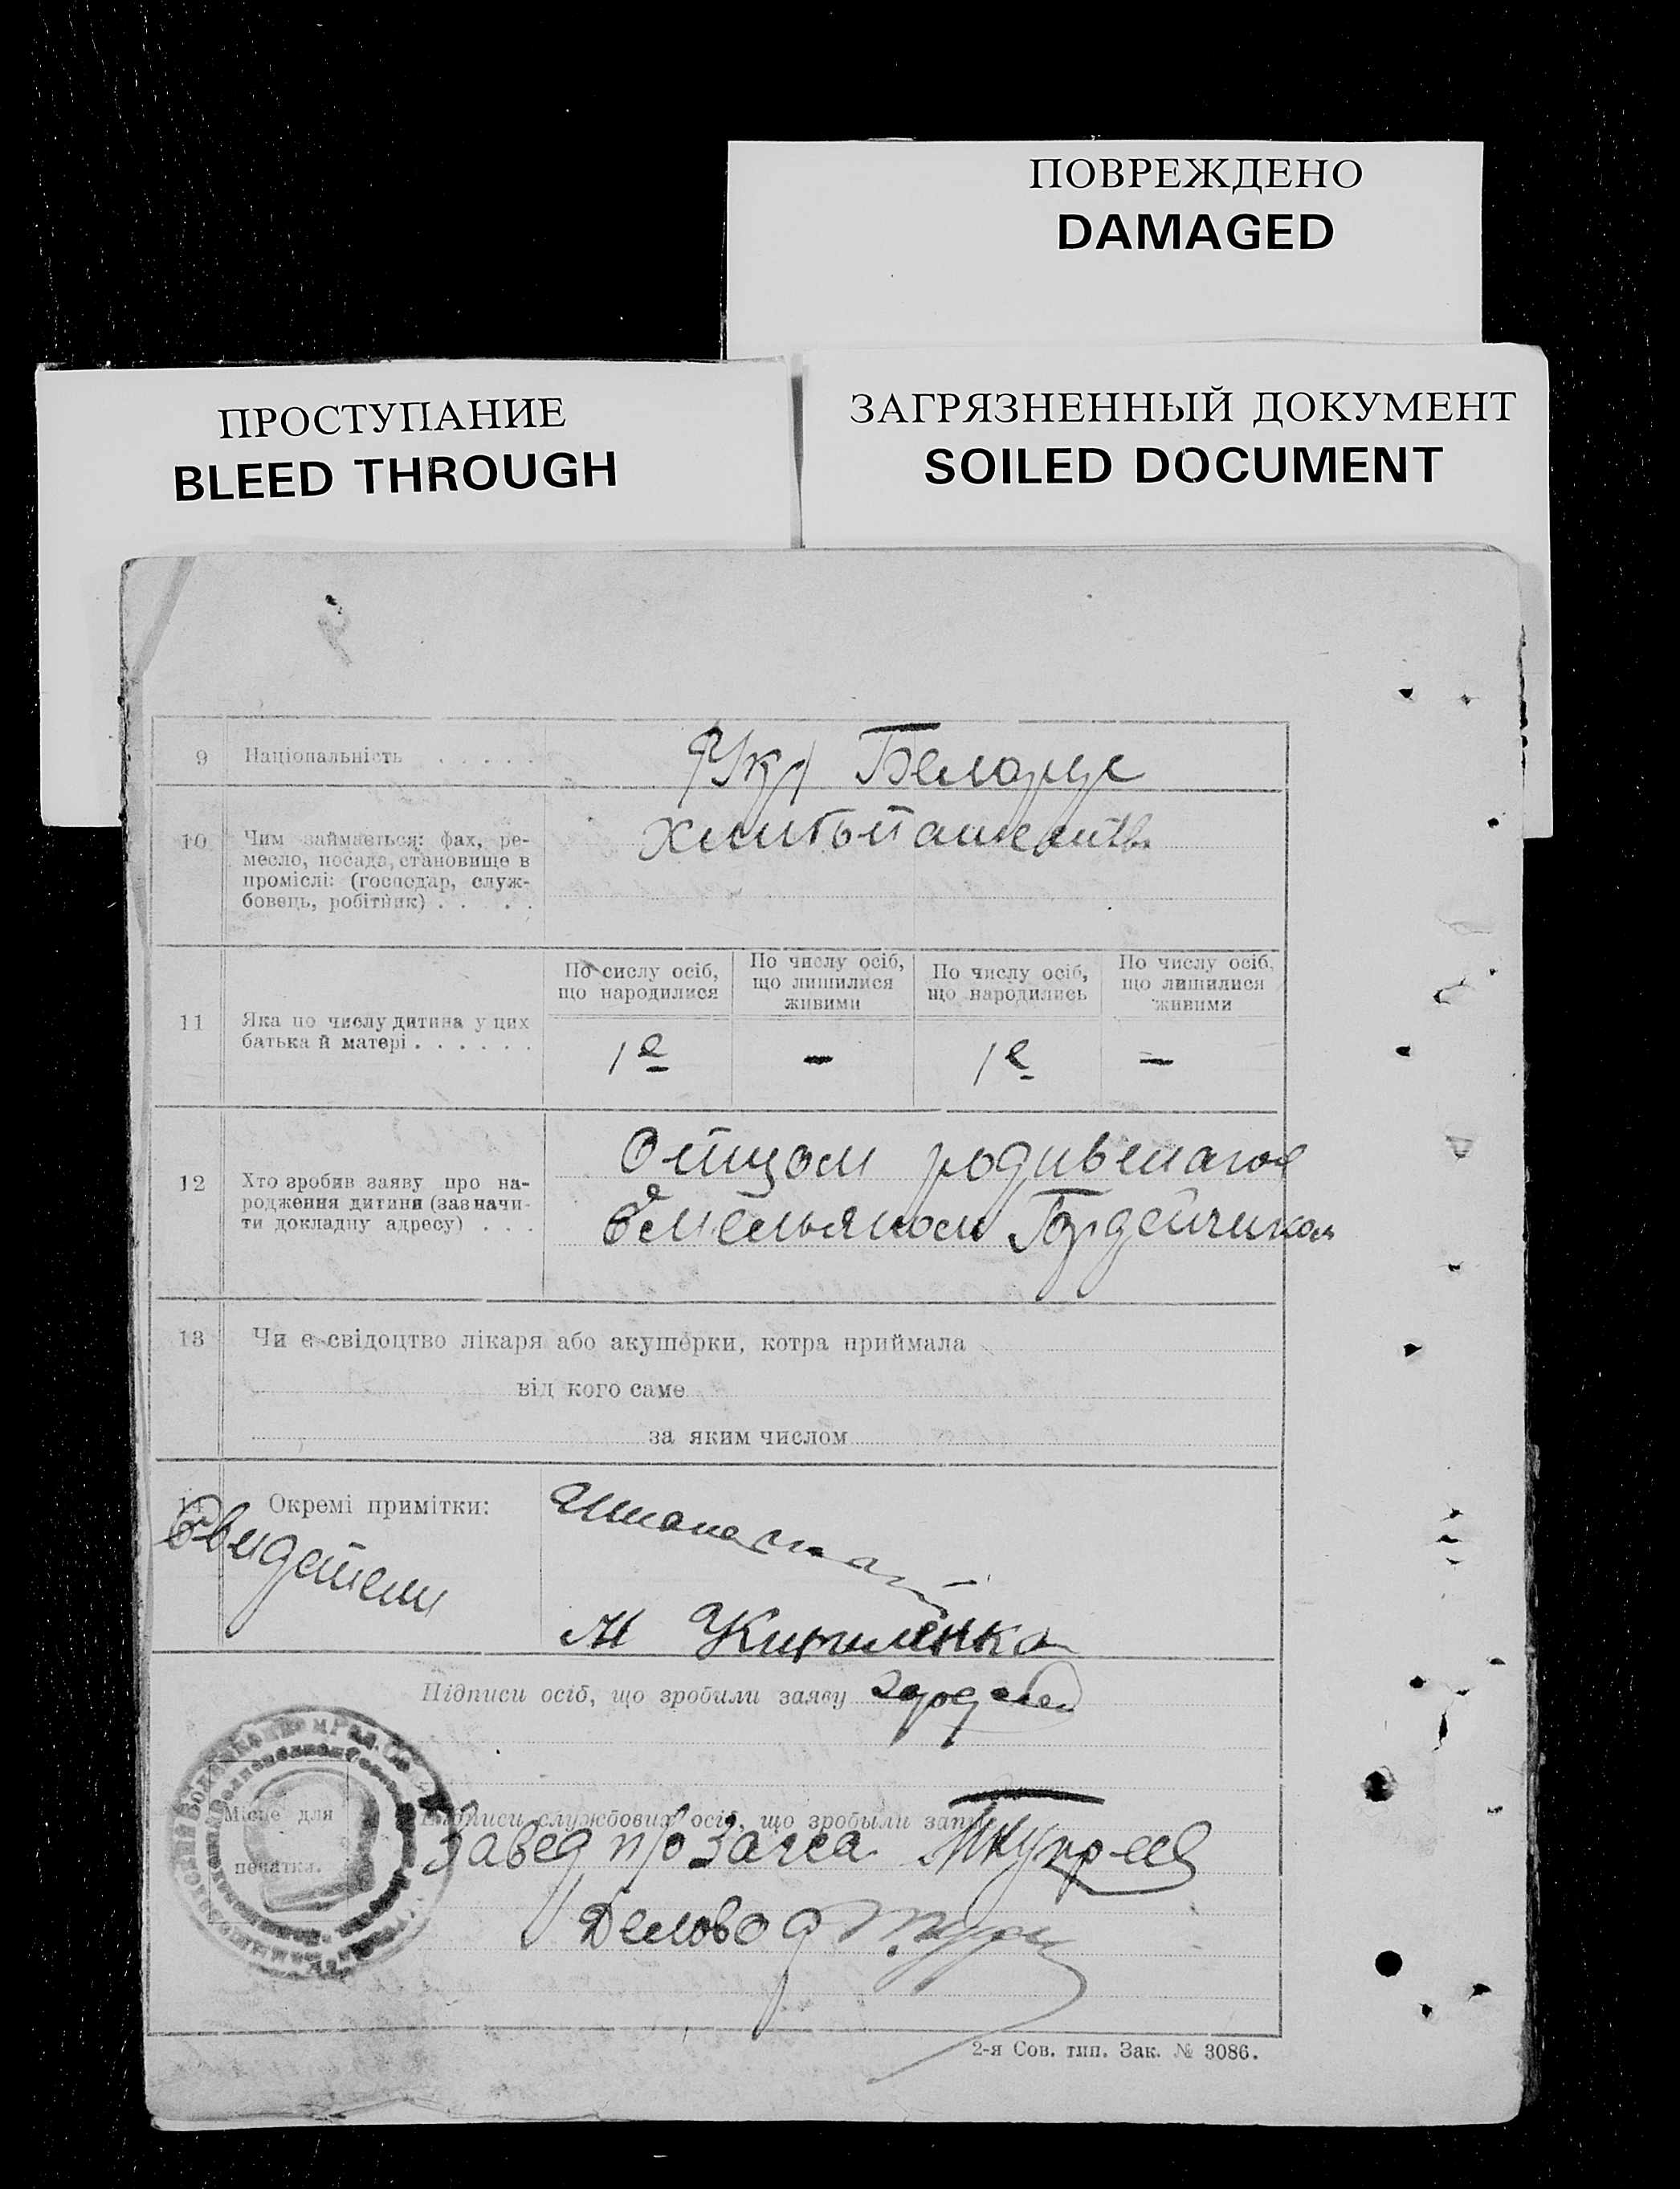 ПОВРЕЖДЕНО
DAMAGED
ПРОСТУПАНИЕ
BLEED THROUGH
ЗАГРЯЗНЕННЫЙ ДОКУМЕНТ
SOILED DOCUMENT
9 Національність . . . . . Укр Беларус
10 Чим займається: фах, ре-
месло, посада, становище в
проміслі: (господар, служ-
бовець, робітник) . . . .
11 Яка по числу дитина у цих
батька й матері . . . . . .
По сислу осіб,
що народилися
1е
По числу осіб,
що лишилися
живими
-
По числу осіб,
що народились
1е
По числу осіб,
що лишилися
живими
-
12 Хто зробив заяву про на-
родження дитини (зазначи-
ти докладну адресу) . . .
Отцом родивешагося
Емельяном Гордейчиком
13 Чи є свідоцтво лікаря або акушерки, котра приймала
від кого саме
за яким числом
14 Окремі примітки:
Свидетели
М Кириленко
Підписи осіб, що зробили заяву
Місце для
печатки.
Підписи службових осіб, що зробыли запис
Завед п/о Загса
Деловод
2-я Сов. тип. Зак. № 3086.